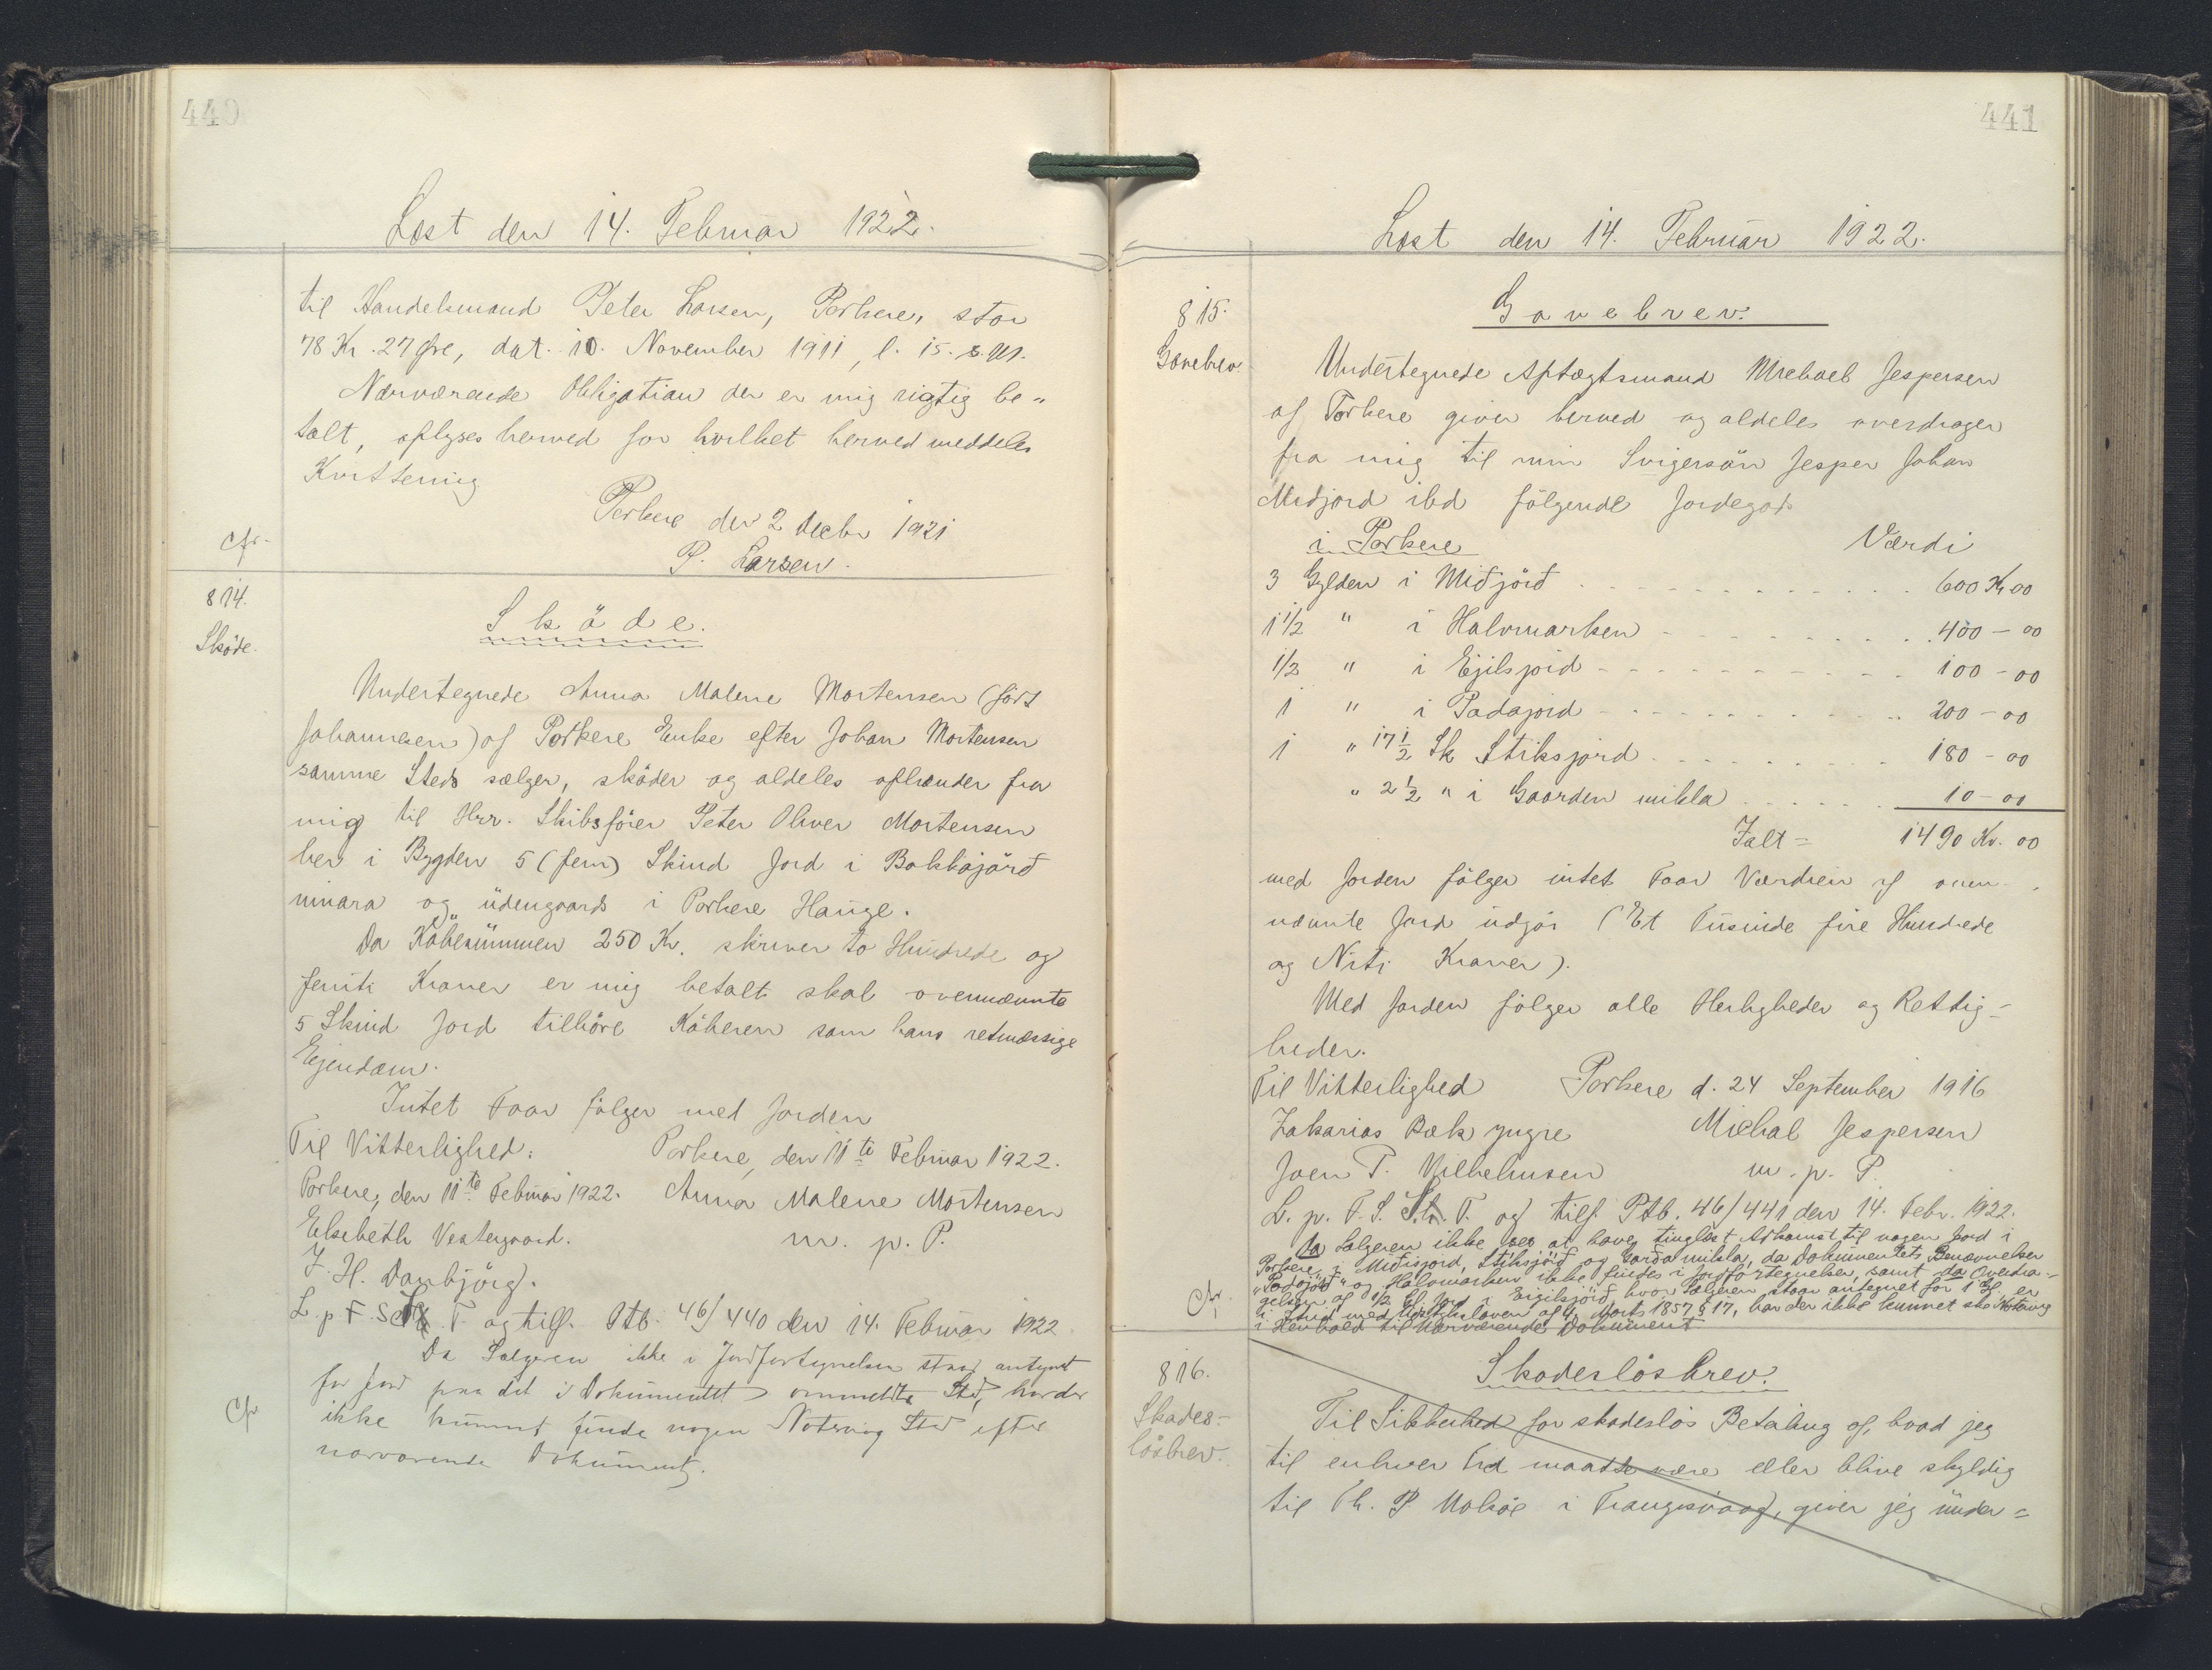 440
Læst den 14. Februar 1922.
til Handelsmand Peter Larsen, Porkere, stor
78 Kr. 27 Øre, dat. 10. November 1911, l. 15. s. M.
Nærværende Obligation der er mig rigtig be„
talt, aflyses herved for hvilket herved meddeles
Kvittering
Porkere den 2 Decbr 1921
cfr.
P. Larsen.
814.
Sköde.
Sköde.
Undertegnede Anna Malene Mortensen (född
Johannesen) af Porkere Enke efter Johan Mortensen
samme Steds sælger, sköder og aldeles afhænder fra
mig til Hrr. Skibsförer Peter Oliver Mortensen
her i Bygden 5 (fem) Skind Jord i Bakkajörð
innara og udengaards i Porkere Hauge.
Da Köbesummen 250 Kr. skriver to Hundrede og
femti Kroner er mig betalt skal ovennævnte
5 Skind Jord tilhöre Köberen som hans retmæssige
Ejendom.
Intet Faar fölger med Jorden
Til Vitterlighed:
Porkere, den 11te Februar 1922.
Porkere, den 11te Februar 1922.
Anna Malene Mortensen
Elsebeth Vestergaard.
m. p. P.
J. H. Dambjørg.
L. p. F. S. T. og tilf. Ptb. 46/440 den 14. Februar 1922
Da Sælgeren ikke i Jordfortegnelsen staar antegnet
for Jord paa det i Dokumentet ommeldte Sted, har der
cfr.
ikke kunnet finde nogen Notering Sted efter
nærværende Dokument.
441
Læst den 14. Februar 1922.
815.
Gavebrev.
Gavebrev.
Undertegnede Aftægtsmand Michael Jespersen
af Porkere giver herved og aldeles overdrager
fra mig til min Svigersön Jesper Johan
Midjord ibd fölgende Jordegods
i Porkere
Værdi
3 Gylden i Miðjörð . . . 600 Kr 00
1 1/2 " i Halvmarken . . . 400 – 00
1/2 " i Ejilsjord . . . 100 – 00
1 " i Padajord . . . 200 – 00
1 " 17 1/2 Sk Stiksjord . . . 180 – 00
" 2 1/2 " i Gaarden mikla . . . 10 – 00
Ialt = 1490 Kr. 00
med Jorden fölger intet Faar Værdien af oven-
nævnte Jord udgör (Et Tusinde fire Hundrede
og Niti Kroner).
Med Jorden fölger alle Herligheder og Rettig=
heder.
Til Vitterlighed
Porkere d. 24 September 1916
Zakarias Bæk yngre
Michal Jespersen
Joen P. Vilhelmsen
m. p. P.
L. p. F. S. T. og tilf. Ptb. 46/441 den 14. Febr. 1922.
Da Sælgeren ikke ses at have tinglæst Adkomst til nogen Jord i
Porkere i Miðisjord, Stiksjörð og Garða mikla, da Dokumentets Benævnelser
"Padajörð" og Halvmarken ikke findes i Jordfortegnelsen, samt da Overdra-
gelsen af 1/2 Gl. Jord i Eigilsjörð, hvor Sælgeren staar antegnet for 1 Gl. er
cfr.
i Strid med Udstykloven af 4. Marts 1857 § 17, har der ikke kunnet ske Notering
i Henhold til nærværende Dokument
816.
Skades-
lösbrev.
Skadeslösbrev.
Til Sikkerhed for skadeslös Betaling af, hvad jeg
til enhver Tid maatte være eller blive skyldig
til Th. P. i Trangisvaag, giver jeg under=